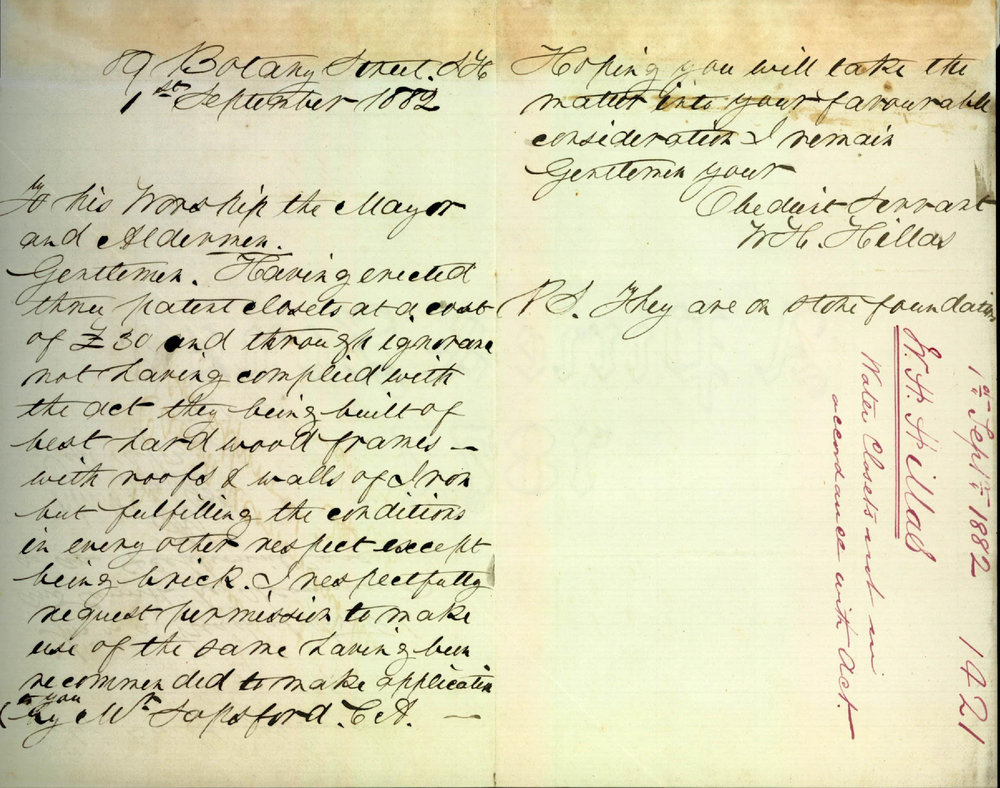 89 Botany Street. S H
1st September 1882
To his Worship the Mayor
and Aldermen.
Gentlemen. Having erected
three patent closets at a cost
of £30 and through ignorance
not having complied with
the act they being built of
best hard wood frames —
with roofs & walls of Iron
but fulfilling the conditions
in every other respect except
being brick. I respectfully
request permission to make
use of the same having been
recommended to make application
to you
by Mr Sapsford. C A. —
Hoping you will take the
matter into your favourable
consideration I remain
Gentlemen your
Obedient Servant
W H. Hillas
P S. They are on stone foundations
1st Sept 1882 1421
W. H. Hillas
Water Closets not in
accordance with Act.